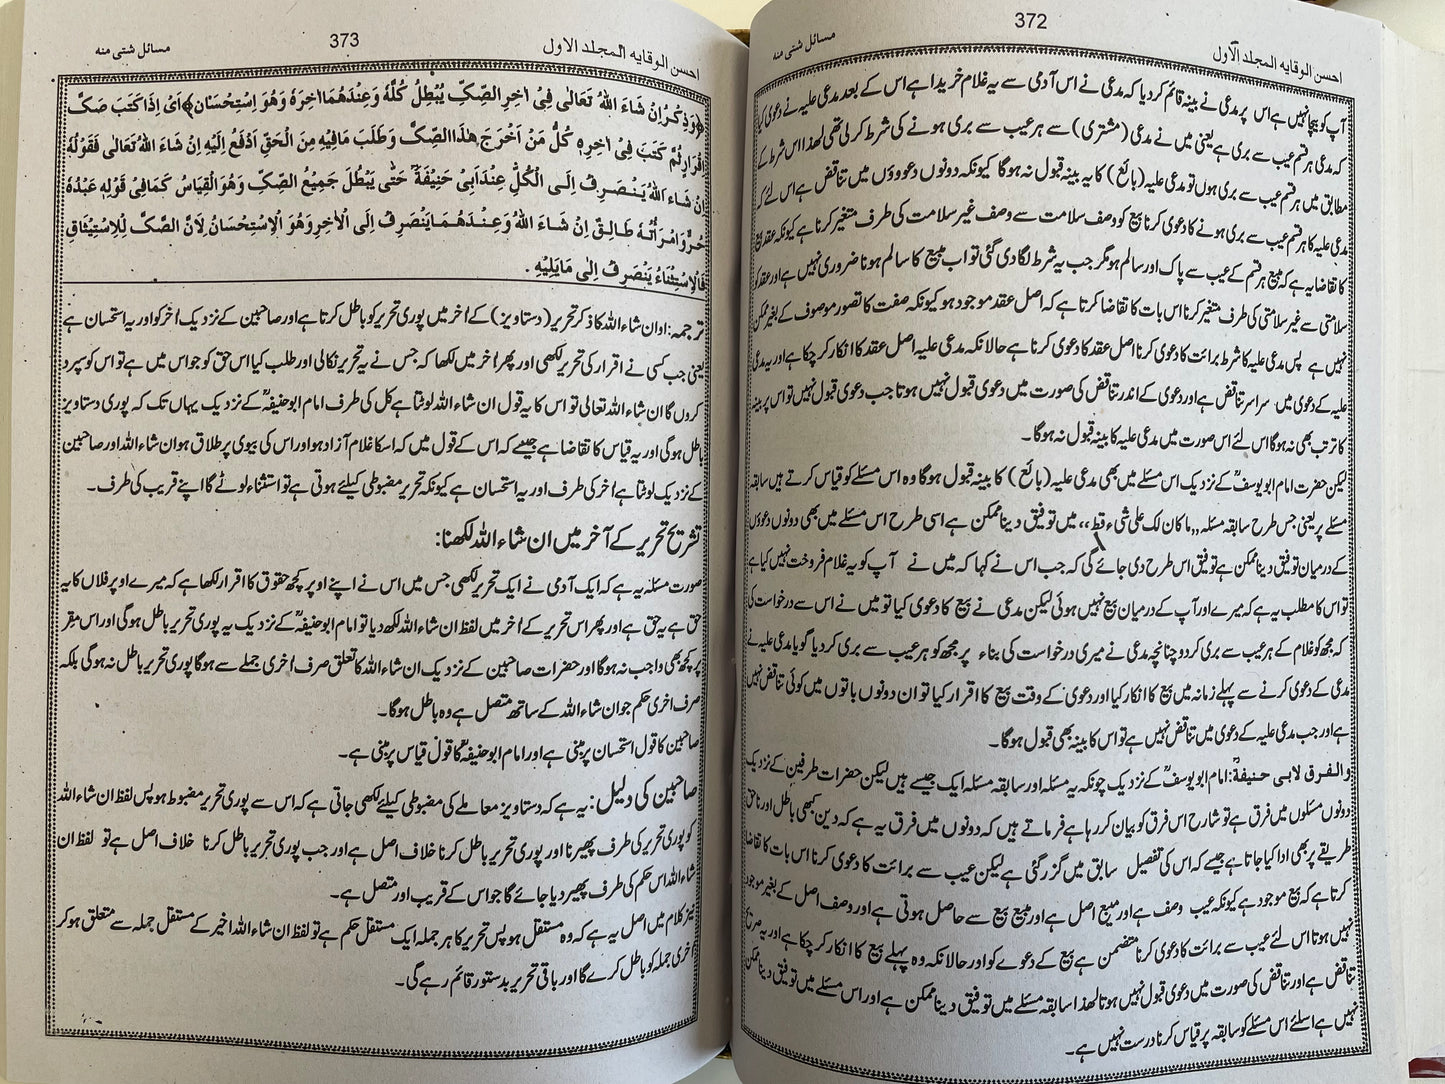 372
احسن الوقایه المجلد الاول
مسائل شتی منه
آپ کو بیچا نہیں ہے اس پر مدعی نے بینہ قائم کر دیا کہ مدعی نے اس آدمی سے یہ غلام خریدا ہے اس کے بعد مدعی علیہ نے دعوی کیا
کہ مدعی ہر قسم عیب سے بری ہے یعنی میں نے مدعی (مشتری) سے ہر عیب سے بری ہونے کی شرط کر لی تھی لھذا اس شرط کے
مطابق میں ہر قسم عیب سے بری ہوں تو مدعی علیہ (بائع) کا یہ بینہ قبول نہ ہوگا کیونکہ دونوں دعووؤں میں تناقض ہے اس لئے کہ
مدعی علیہ کا ہر قسم عیب سے بری ہونے کا دعوی کرنا بیع کو وصف سلامت سے وصف غیر سلامت کی طرف متغیر کرنا ہے کیونکہ عقد بیع
کا تقاضا یہ ہے کہ مبیع ہر قسم کے عیب سے پاک اور سالم ہو مگر جب یہ شرط لگا دی گئی تو اب مبیع کا سالم ہونا ضروری نہیں ہے اور عقد کو
سلامتی سے غیر سلامتی کی طرف متغیر کرنا اس بات کا تقاضا کرتا ہے کہ اصل عقد موجود ہو کیونکہ صفت کا تصور موصوف کے بغیر ممکن
نہیں ہے پس مدعی علیہ کا شرط برائت کا دعوی کرنا اصل عقد کا دعوی کرنا ہے حالانکہ مدعی علیہ اصل عقد کا انکار کر چکا ہے اور یہ مدعی
علیہ کے دعوی میں سراسر تناقض ہے اور دعوی کے اندر تناقض کی صورت میں دعوی قبول نہیں ہوتا جب دعوی قبول نہیں تو اس پر بینہ
کا ترتب بھی نہ ہوگا اس لئے اس صورت میں مدعی علیہ کا بینہ قبول نہ ہوگا۔
لیکن حضرت امام ابو یوسفؒ کے نزدیک اس مسئلے میں بھی مدعی علیہ (بائع) کا بینہ قبول ہوگا وہ اس مسئلے کو قیاس کرتے ہیں سابقہ
مسئلے پر یعنی جس طرح سابقہ مسئلہ ,,ما کان لک علی شیء قط،، میں توفیق دینا ممکن ہے اسی طرح اس مسئلے میں بھی دونوں دعوؤں
کے درمیان توفیق دینا ممکن ہے توفیق اس طرح دی جائے گی کہ جب اس نے کہا کہ میں نے آپ کو یہ غلام فروخت نہیں کیا ہے
تو اس کا مطلب یہ ہے کہ میرے اور آپ کے درمیان بیع نہیں ہوئی لیکن مدعی نے بیع کا دعوی کیا تو میں نے اس سے درخواست کی
کہ مجھ کو غلام کے ہر عیب سے بری کر دو چنانچہ مدعی نے میری درخواست کی بناء پر مجھ کو ہر عیب سے بری کر دیا گویا مدعی علیہ نے
مدعی کے دعوی کرنے سے پہلے زمانہ میں بیع کا انکار کیا اور دعوی کے وقت بیع کا اقرار کیا تو ان دونوں باتوں میں کوئی تناقض نہیں
ہے اور جب مدعی علیہ کے دعوی میں تناقض نہیں ہے تو اس کا بینہ بھی قبول ہوگا۔
والفرق لابی حنیفةؒ: امام ابو یوسفؒ کے نزدیک چونکہ یہ مسئلہ اور سابقہ مسئلہ ایک جیسے ہیں لیکن حضرات طرفینؒ کے نزدیک
دونوں مسئلوں میں فرق ہے تو شارح اس فرق کو بیان کر رہا ہے فرماتے ہیں کہ دونوں میں فرق یہ ہے کہ دین کبھی باطل اور ناحق
طریقے پر بھی ادا کیا جاتا ہے جیسے کہ اس کی تفصیل سابق میں گزر گئی ہے لیکن عیب سے برائت کا دعوی کرنا اس بات کا تقاضا
کرتا ہے کہ بیع موجود ہے کیونکہ عیب وصف ہے اور مبیع اصل ہے اور مبیع بیع سے حاصل ہوتی ہے اور وصف اصل کے بغیر موجود
نہیں ہوتا اس لئے عیب سے برائت کا دعوی کرنا متضمن ہے بیع کے دعوے کو اور حالانکہ وہ پہلے بیع کا انکار کر چکا ہے اور یہ صریح
تناقض ہے اور تناقض کی صورت میں دعوی قبول نہیں ہوتا لھذا سابقہ مسئلے میں توفیق دینا ممکن ہے اور اس مسئلے میں توفیق دینا ممکن
نہیں ہے اسلئے اس مسئلے کو سابقہ پر قیاس کرنا درست نہیں ہے۔
373
احسن الوقایه المجلد الاول
مسائل شتی منه
﴿وَذِكْرُ اِنْ شَاءَ اللهُ تَعَالٰى فِىْ اٰخِرِ الصَّكِّ يُبْطِلُ كُلَّهُ وَعِنْدَهُمَا اٰخِرَهُ وَهُوَ اِسْتِحْسَان﴾ اَىْ اِذَا كَتَبَ صَكَّ
اِقْرَارٍ ثُمَّ كَتَبَ فِىْ اٰخِرِهٖ كُلُّ مَنْ اَخْرَجَ هٰذَا الصَّكَّ وَطَلَبَ مَا فِيْهِ مِنَ الْحَقِّ اَدْفَعُ اِلَيْهِ اِنْ شَاءَ اللهُ تَعَالٰى فَقَوْلُهُ
اِنْ شَاءَ اللهُ يَنْصَرِفُ اِلَى الْكُلِّ عِنْدَ اَبِىْ حَنِيْفَةَؒ حَتّٰى يَبْطُلَ جَمِيْعُ الصَّكِّ وَهُوَ الْقِيَاسُ كَمَا فِىْ قَوْلِهٖ عَبْدُهُ
حُرٌّ وَامْرَأَتُهُ طَالِقٌ اِنْ شَاءَ اللهُ وَعِنْدَهُمَا يَنْصَرِفُ اِلَى الْاٰخِرِ وَهُوَ الْاِسْتِحْسَانُ لِاَنَّ الصَّكَّ لِلْاِسْتِيْثَاقِ
فَالْاِسْتِثْنَاءُ يَنْصَرِفُ اِلٰى مَا يَلِيْهِ .
ترجمہ: اور ان شاء اللہ کا ذکر تحریر (دستاویز) کے آخر میں پوری تحریر کو باطل کرتا ہے اور صاحبین کے نزدیک آخر کو اور یہ استحسان ہے
یعنی جب کسی نے اقرار کی تحریر لکھی اور پھر آخر میں لکھا کہ جس نے یہ تحریر نکالی اور طلب کیا اس حق کو جو اس میں ہے تو اس کو سپرد
کروں گا ان شاء اللہ تعالی تو اس کا یہ قول ان شاء اللہ لوٹتا ہے کل کی طرف امام ابو حنیفہؒ کے نزدیک یہاں تک کہ پوری دستاویز
باطل ہوگی اور یہ قیاس کا تقاضا ہے جیسے کہ اس کے قول میں کہ اسکا غلام آزاد ہو اور اس کی بیوی پر طلاق ہو ان شاء اللہ اور صاحبین
کے نزدیک لوٹتا ہے آخر کی طرف اور یہ استحسان ہے کیونکہ تحریر مضبوطی کیلئے ہوتی ہے تو استثناء لوٹے گا اپنے قریب کی طرف۔
تشریح تحریر کے آخر میں ان شاء اللہ لکھنا:
صورت مسئلہ یہ ہے کہ ایک آدمی نے ایک تحریر لکھی جس میں اس نے اپنے اوپر کچھ حقوق کا اقرار لکھا ہے کہ میرے اوپر فلاں کا یہ
حق ہے یہ حق ہے اور پھر اس تحریر کے آخر میں لفظ ان شاء اللہ لکھ دیا تو امام ابو حنیفہؒ کے نزدیک یہ پوری تحریر باطل ہوگی اور اس مقر
پر کچھ بھی واجب نہ ہوگا اور حضرات صاحبین کے نزدیک ان شاء اللہ کا تعلق صرف آخری جملے سے ہوگا پوری تحریر باطل نہ ہوگی بلکہ
صرف آخری حکم جو ان شاء اللہ کے ساتھ متصل ہے وہ باطل ہوگا۔
صاحبین کا قول استحسان پر مبنی ہے اور امام ابو حنیفہؒ کا قول قیاس پر مبنی ہے۔
صاحبین کی دلیل: یہ ہے کہ دستاویز معاملے کی مضبوطی کیلئے لکھی جاتی ہے کہ اس سے پوری تحریر مضبوط ہو پس لفظ ان شاء اللہ
کو پوری تحریر کی طرف پھیرنا اور پوری تحریر باطل کرنا خلاف اصل ہے اور جب پوری تحریر باطل کرنا خلاف اصل ہے تو لفظ ان
شاء اللہ اس حکم کی طرف پھیر دیا جائے گا جو اس کے قریب اور متصل ہے۔
نیز کلام میں اصل یہ ہے کہ وہ مستقل ہو پس تحریر کا ہر جملہ ایک مستقل حکم ہے تو لفظ ان شاء اللہ اخیر کے مستقل جملہ سے متعلق ہو کر
آخری جملہ کو باطل کرے گا اور باقی تحریر بدستور قائم رہے گی۔